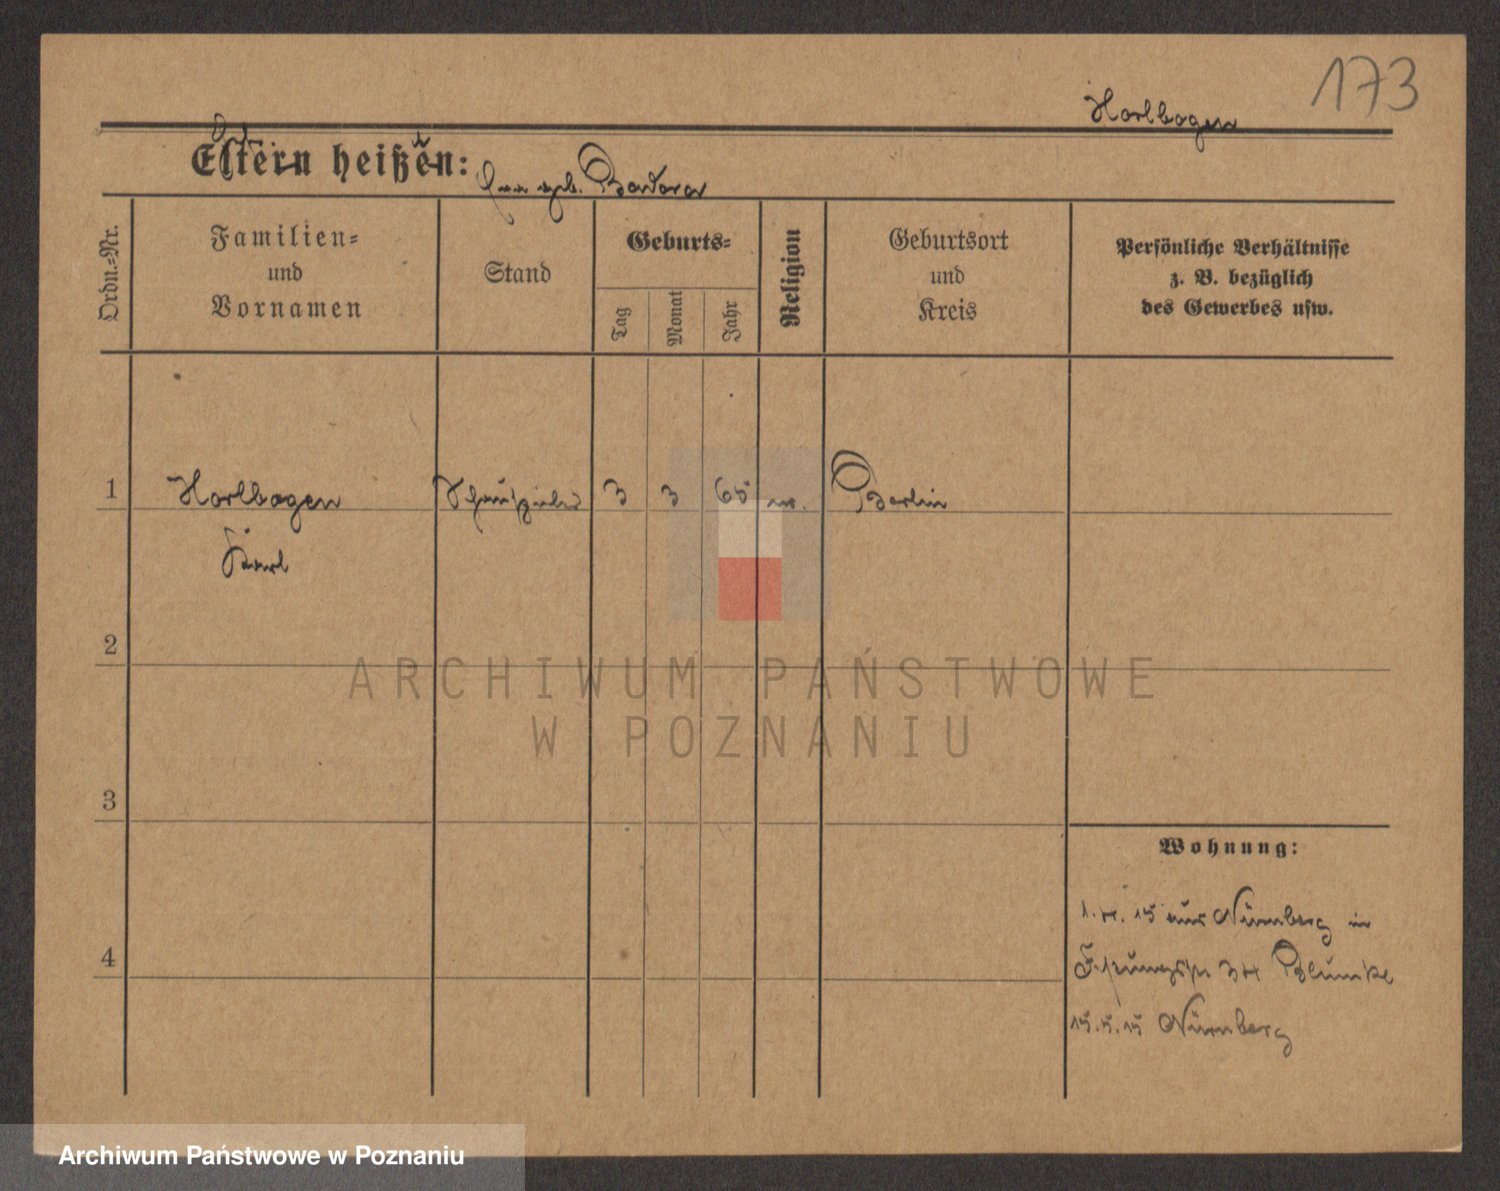 173
Horlbogen
Eltern heißen:
geb.
Ordn.-Nr.
Familien-
und
Vornamen
Stand
Geburts-
Tag
Monat
Jahr
Religion
Geburtsort
und
Kreis
Persönliche Verhältnisse
z. B. bezüglich
des Gewerbes usw.
1 Horlbogen Schauspieler 3 3 65 Berlin
Karl
2
ARCHIWUM PAŃSTWOWE
W POZNANIU
3
Wohnung:
15 aus Nürnberg in
4
34
15.5.15 Nürnberg
Archiwum Państwowe w Poznaniu